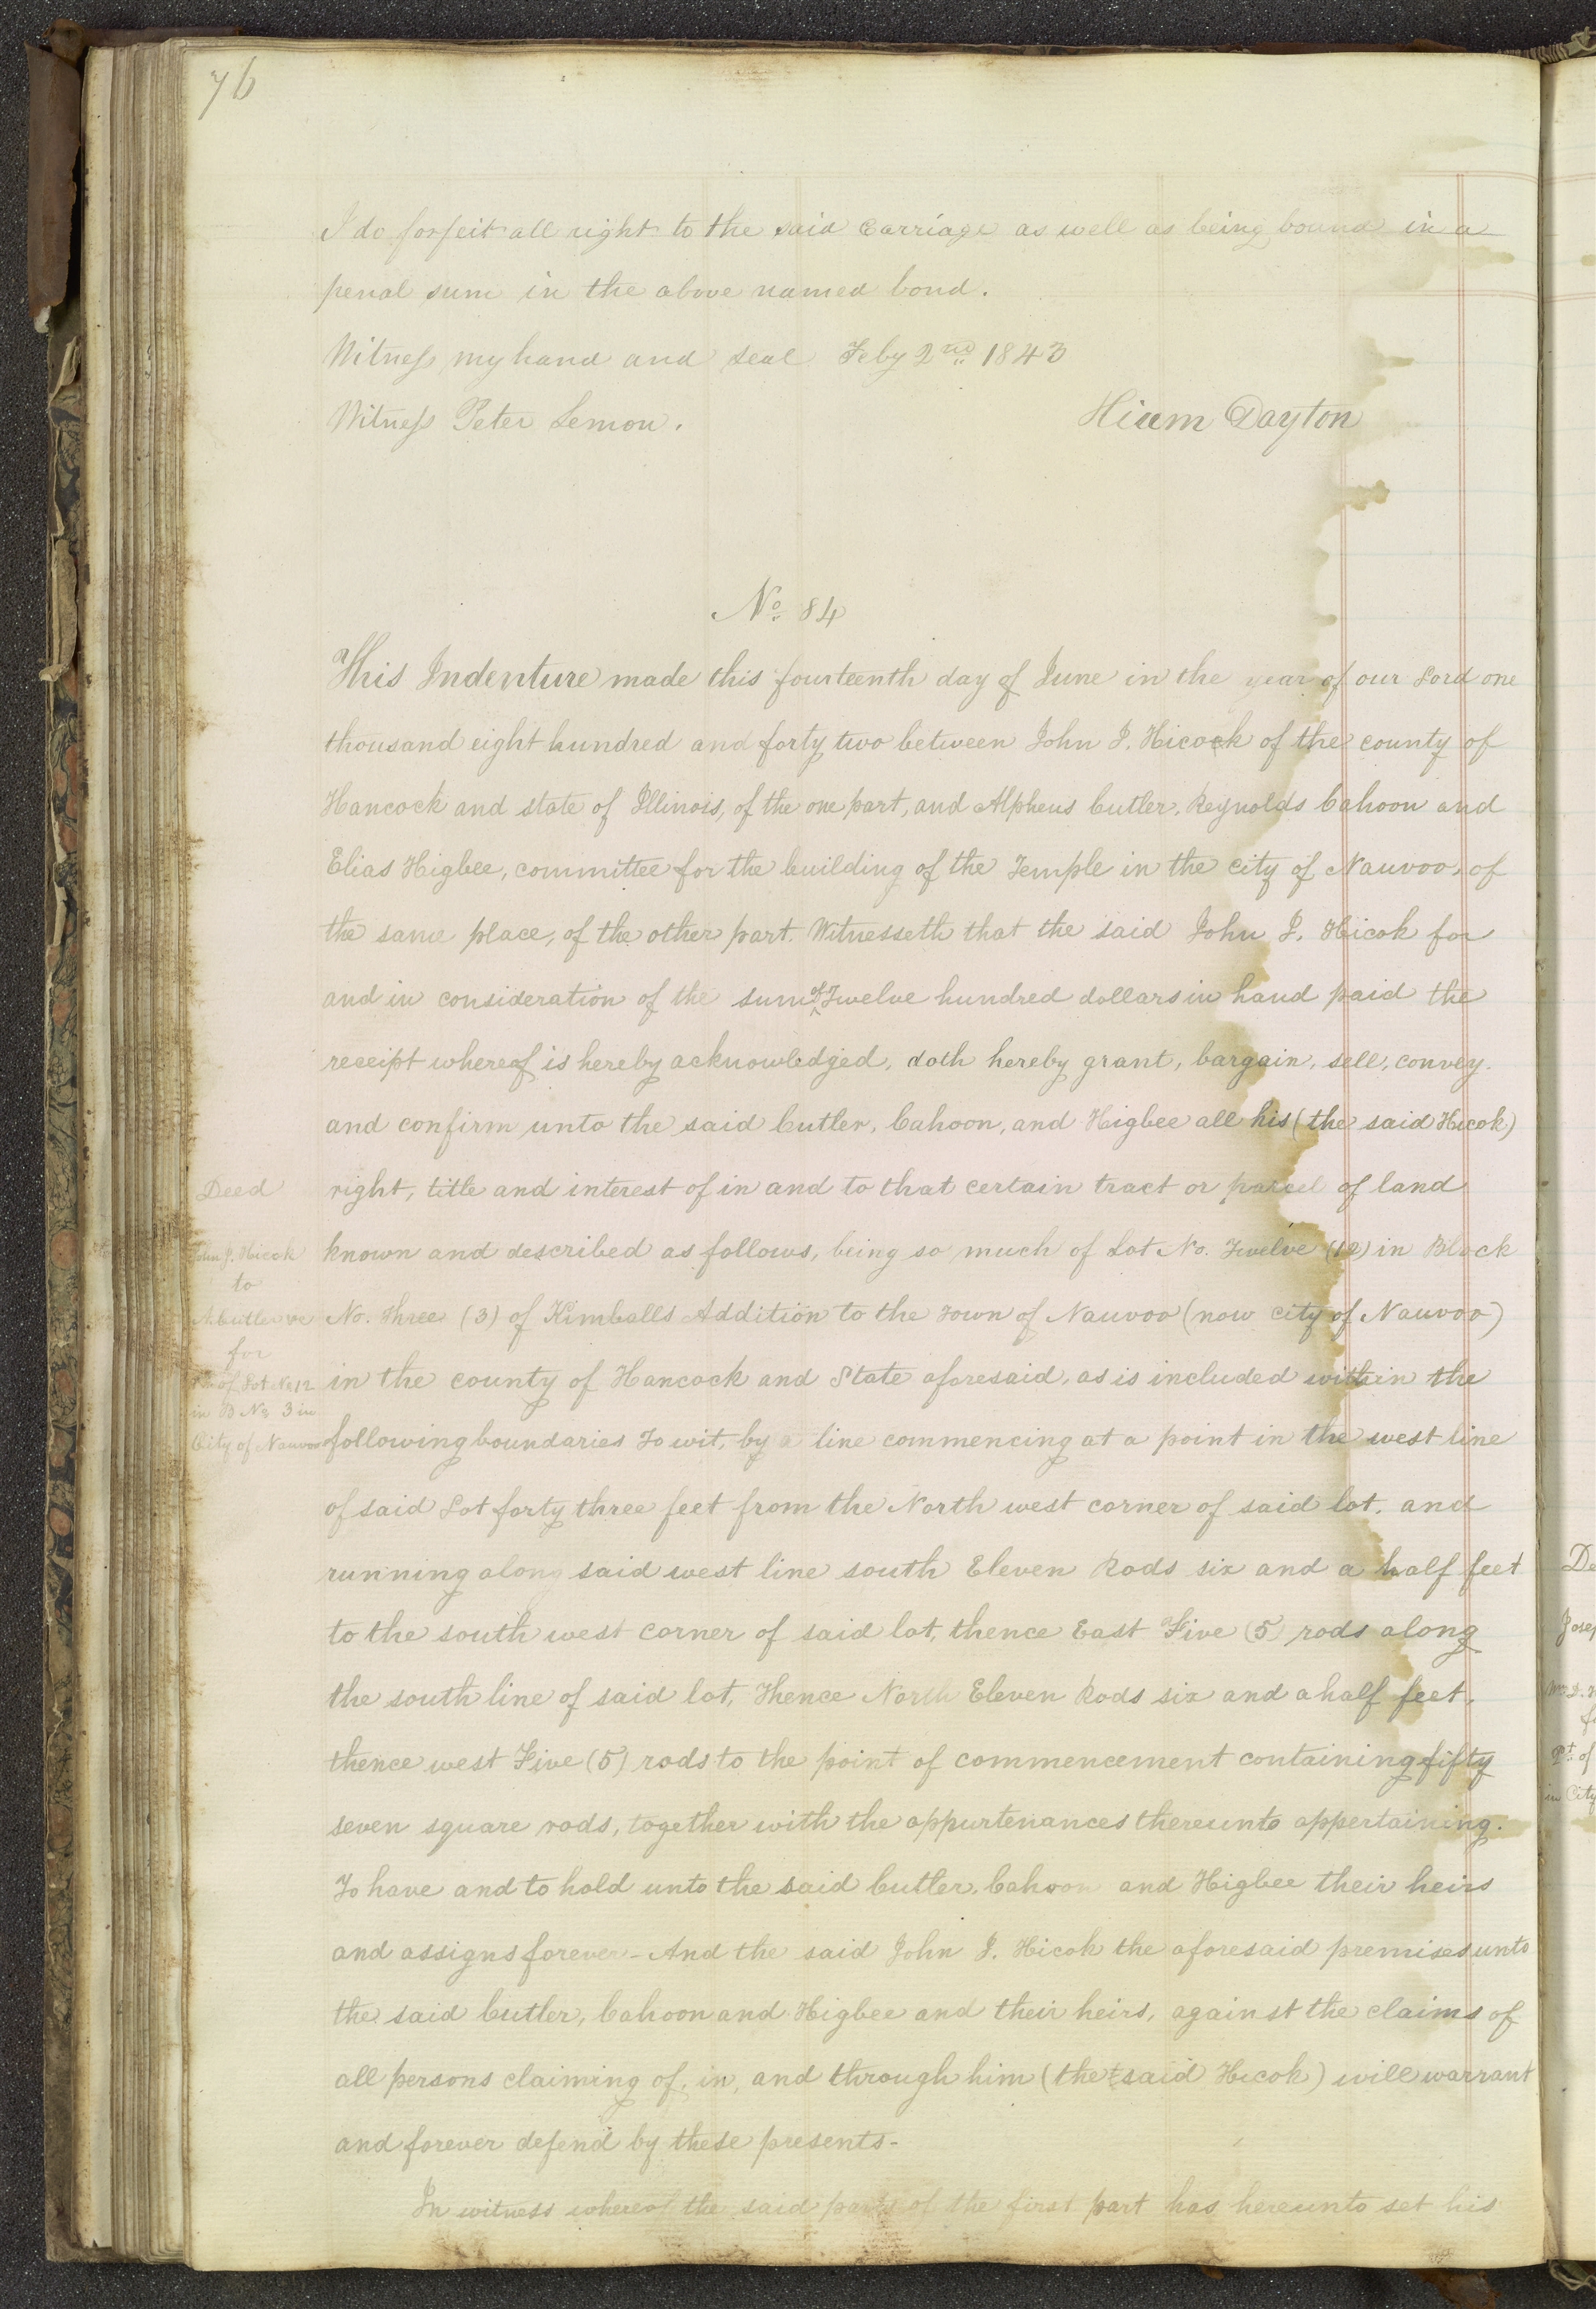 76
I do forfeit all right to the said Carriage as well as being bound in a
penal sum in the above named bond.
Witness my hand and seal Feby 2nd 1843
Witness Peter Lemon. Hirum Dayton
No. 84
This Indenture made this fourteenth day of June in the year of our Lord one
thousand eight hundred and forty two between John J. Hicock of the county of
Hancock and state of Illinois, of the one part, and Alpheus Cutler, Reynolds Cahoon and
Elias Higbee, committee for the building of the Temple in the city of Nauvoo, of
the same place, of the other part. Witnesseth that the said John J. Hicok for
and in consideration of the sum of Twelve hundred dollars in hand paid the
receipt whereof is hereby acknowledged, doth hereby grant, bargain, sell, convey.
and confirm unto the said Cutler, Cahoon, and Higbee all his (the said Hicok)
Deed
right, title and interest of in and to that certain tract or parcel of land
John J. Hicok
known and described as follows, being so much of Lot No. Twelve (12) in Block
to
A. Cutler
No. Three (3) of Kimballs Addition to the Town of Nauvoo (now city of Nauvoo)
for
of Lot No 12
in the county of Hancock and State aforesaid, as is included within the
in B No 3 in
City of Nauvoo
following boundaries To wit, by a line commencing at a point in the west line
of said Lot forty three feet from the North west corner of said lot, and
running along said west line south Eleven Rods six and a half feet
to the south west corner of said lot, thence East Five (5) rods along
the south line of said lot, Thence North Eleven Rods six and a half feet,
thence west Five (5) rods to the point of commencement containing fifty
seven square rods, together with the appurtenances thereunto appertaining.
To have and to hold unto the said Cutler, Cahoon and Higbee their heirs
and assigns forever - And the said John J. Hicok the aforesaid premises unto
the said Cutler, Cahoon and Higbee and their heirs, against the claims of
all persons claiming of, in, and through him (the said Hicok) will warrant
and forever defend by these presents -
In witness whereof the said party of the first part has hereunto set his